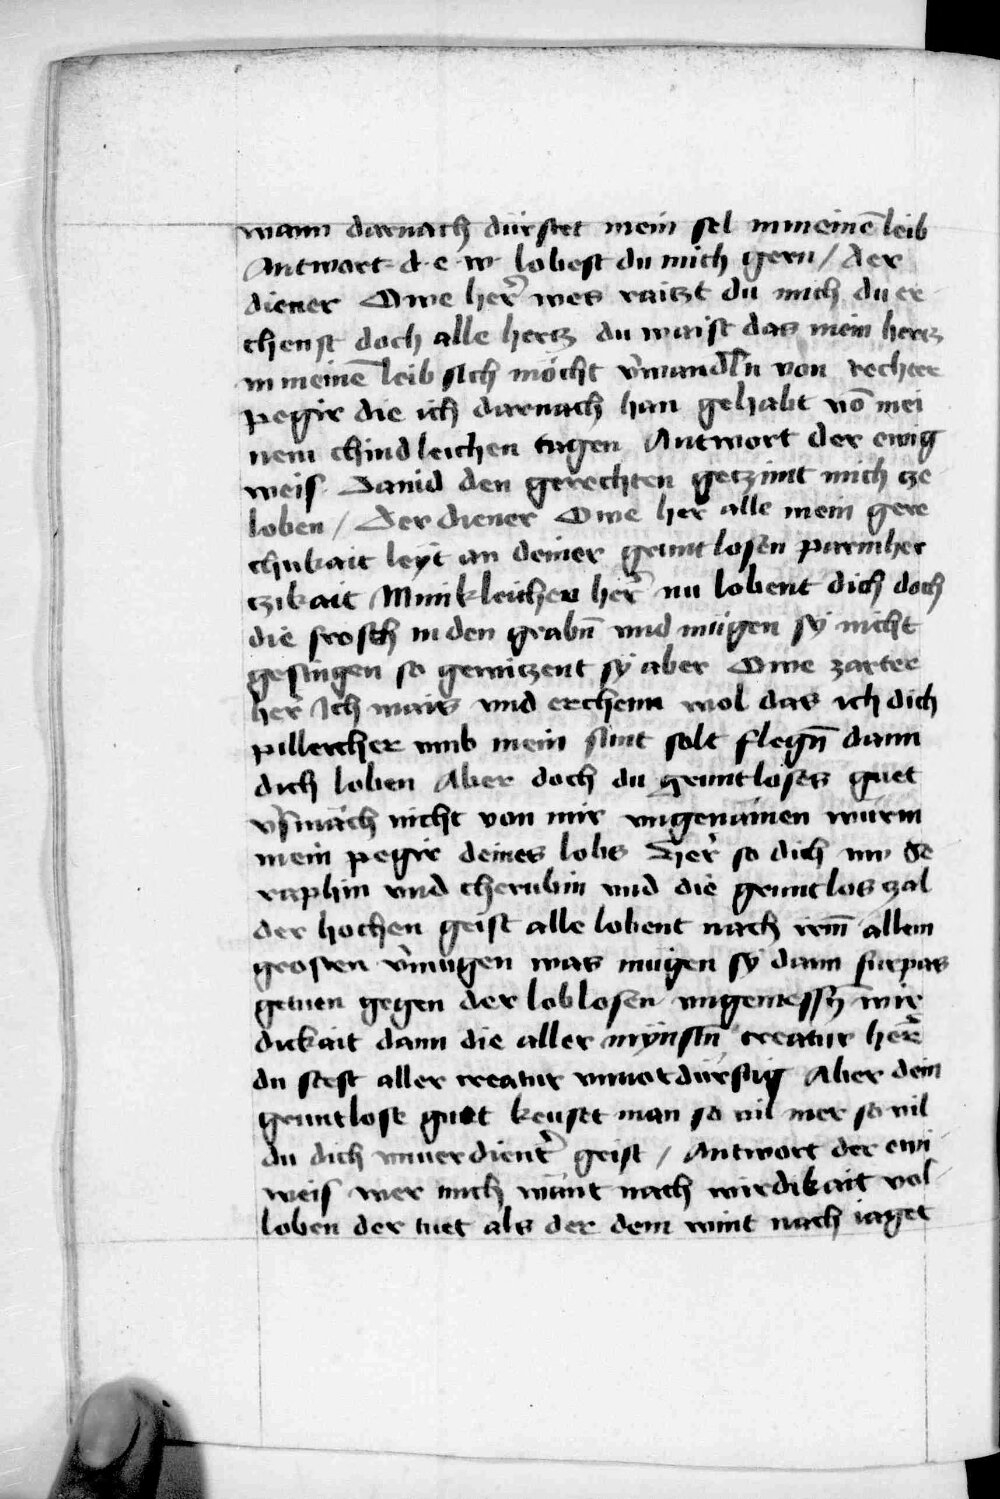 wann darnach dürstet mein sel in meinē leib
Antwort d e w lobest du mich gern / der
diener Owe her̄ wes raitzt du mich du er
chenst doch alle hertz du waist das mein hertz
in meinē leib sich möcht v̉wandl̄n von rechter
pegir die ich darnach han gehabt vō mei
nem chindleichen tagen Antwort der ewig
weis Dauid den gerechten getzimt mich ze
loben / Der diener Owe her alle mein gere
chtikait leyt an deiner gruntlosen parmher
tzikait Minikleicher her̄ nu lobent dich doch
die frosch in den grabn̄ vnd mügen sy nicht
gesingen so gewitzent sy aber Owe zarter
her̄ Ich wais vnd erchenn wol das ich dich
pilleicher vmb mein sunt solt flegn̄ dann
dich loben Aber doch du gruntloses guet
v̉smäch nicht von mir vngenämen würm
mein pegir deines lobs Her̄ so dich nu Se
raphin vnd cherubin vnd die gruntlos zal
der hochen geist alle lobent nach irm̄ allem
grosten v̉mügen was mügen sy dann fürpas
getuen gegen der loblosen vngemessn̄ wir
dickait dann die aller mynstn̄ creatur her̄
du stest aller creatur vnuordürftig Aber dein
gruntlose guet keuset man so vil mer so vil
du dich vnuerdient̉ geist / Antwort der ewi
weis wer mich wänt nach wirdikait vol
loben der tuet als der dem wint nach iaget